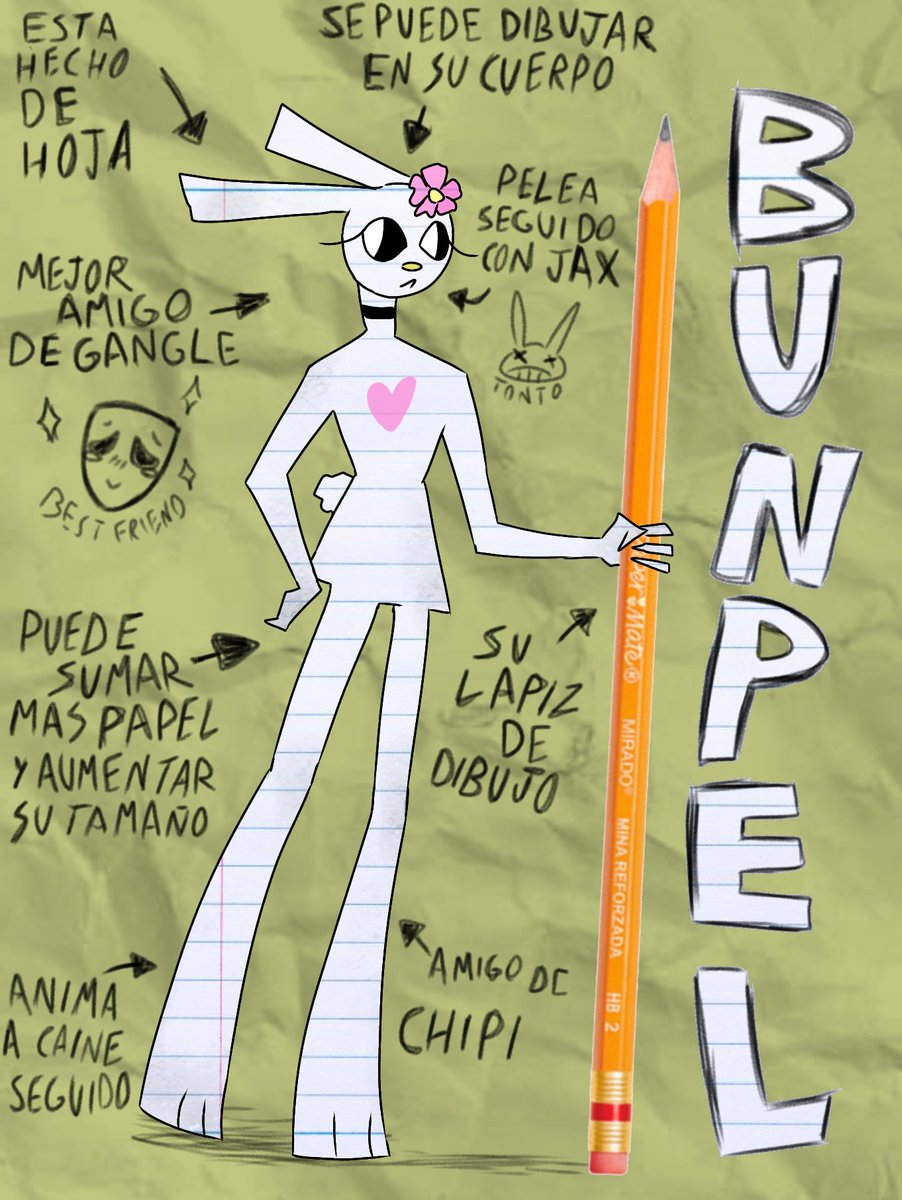 ESTA
HECHO
DE
HOJA
SE PUEDE DIBUJAR
EN SU CUERPO
PELEA
SEGUIDO
CON JAX
TONTO
MEJOR
AMIGO
DE GANGLE
BEST FRIEND
PUEDE
SUMAR
MAS PAPEL
Y AUMENTAR
SU TAMAÑO
SU
LAPIZ
DE
DIBUJO
ANIMA
A CAINE
SEGUIDO
AMIGO DE
CHIPI
Mate®
MIRADO®
MINA REFORZADA
HB 2
BUNPEL